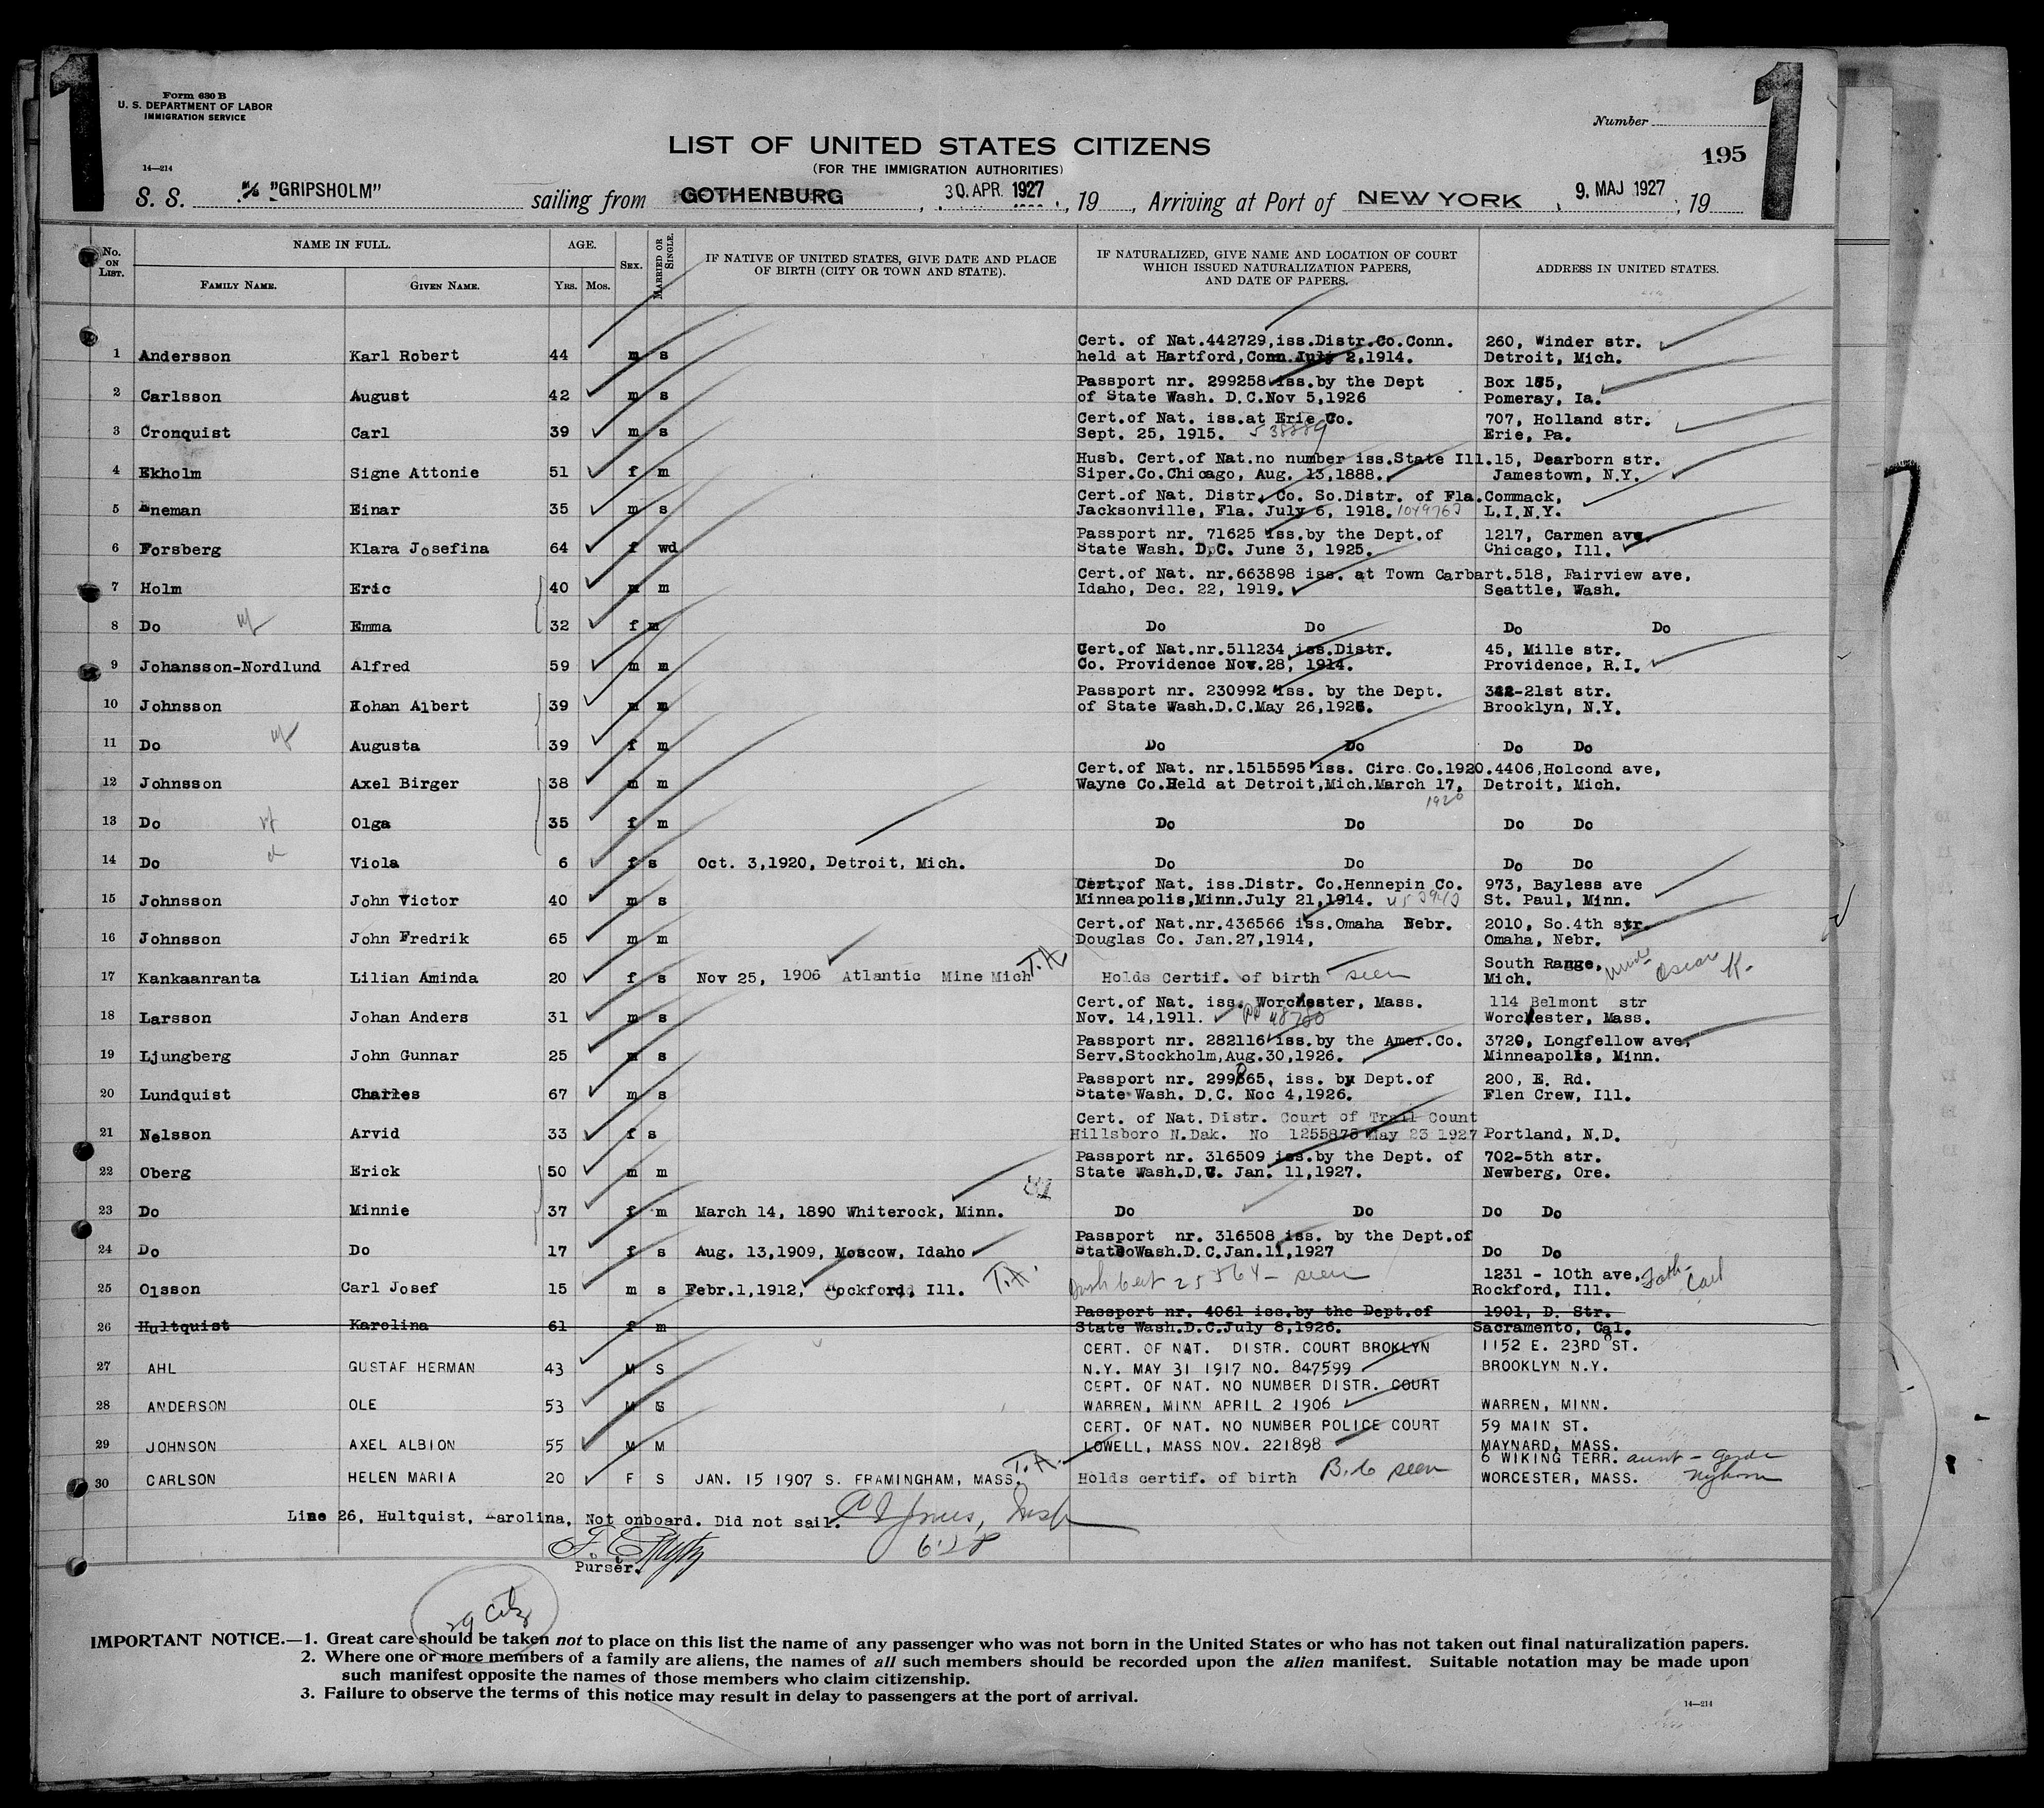 1 1
Form 630 B
U. S. DEPARTMENT OF LABOR
IMMIGRATION SERVICE
Number
LIST OF UNITED STATES CITIZENS
(FOR THE IMMIGRATION AUTHORITIES)
195
14—214
S. S. M/S "GRIPSHOLM" sailing from GOTHENBURG, 30. APR. 1927, 19 , Arriving at Port of NEW YORK, 9. MAJ 1927, 19
No. ON LIST. NAME IN FULL. AGE. SEX. MARRIED OR SINGLE. IF NATIVE OF UNITED STATES, GIVE DATE AND PLACE OF BIRTH (CITY OR TOWN AND STATE). IF NATURALIZED, GIVE NAME AND LOCATION OF COURT WHICH ISSUED NATURALIZATION PAPERS, AND DATE OF PAPERS. ADDRESS IN UNITED STATES.
FAMILY NAME. GIVEN NAME. YRS. MOS.
Cert. of Nat.442729,iss.Distr.Co.Conn. 260, Winder str.
1 Andersson Karl Robert 44 m s held at Hartford,Conn.July 2,1914. Detroit, Mich.
Passport nr. 299258 iss.by the Dept Box 185,
2 Carlsson August 42 m s of State Wash. D.C.Nov 5,1926 Pomeray, Ia.
Cert.of Nat. iss.at Erie Co. 707, Holland str.
3 Cronquist Carl 39 m s Sept. 25, 1915. 538889 Erie, Pa.
Husb. Cert.of Nat.no number iss.State Ill. 15, Dearborn str.
4 Ekholm Signe Attonie 51 f m Siper.Co.Chicago, Aug. 13,1888. Jamestown, N.Y.
Cert.of Nat. Distr. Co. So.Distr. of Fla. Commack,
5 Eneman Einar 35 m s Jacksonville, Fla. July 6, 1918. 1049763 L.I.N.Y.
Passport nr. 71625 iss.by the Dept.of 1217, Carmen ave.
6 Forsberg Klara Josefina 64 f wd State Wash. D.C. June 3, 1925. Chicago, Ill.
Cert.of Nat. nr.663898 iss. at Town Carbart. 518, Fairview ave,
7 Holm Eric 40 m m Idaho, Dec. 22, 1919. Seattle, Wash.
8 Do wf Emma 32 f m Do Do Do Do
Cert.of Nat.nr.511234 iss.Distr. 45, Mille str.
9 Johansson-Nordlund Alfred 59 m m Co. Providence Nov.28, 1914. Providence, R.I.
Passport nr. 230992 iss. by the Dept. 322-21st str.
10 Johnsson Kohan Albert 39 m m of State Wash.D.C.May 26,1926. Brooklyn, N.Y.
11 Do wf Augusta 39 f m Do Do Do Do
Cert.of Nat. nr.1515595 iss. Circ.Co.1920. 4406,Holcond ave,
12 Johnsson Axel Birger 38 m m Wayne Co.Held at Detroit,Mich.March 17, Detroit, Mich.
1920
13 Do wf Olga 35 f m Do Do Do Do
14 Do d Viola 6 f s Oct. 3,1920, Detroit, Mich. Do Do Do Do
Cert.of Nat. iss.Distr. Co.Hennepin Co. 973, Bayless ave
15 Johnsson John Victor 40 m s Minneapolis,Minn.July 21,1914. St. Paul, Minn.
Cert.of Nat.nr.436566 iss.Omaha Nebr. 2010, So.4th str.
16 Johnsson John Fredrik 65 m m Douglas Co. Jan.27,1914, Omaha, Nebr.
South Range,
17 Kankaanranta Lilian Aminda 20 f s Nov 25, 1906 Atlantic Mine Mich T.A. Holds Certif. of birth seen Mich. Oscar K.
Cert.of Nat. iss. Worchester, Mass. 114 Belmont str
18 Larsson Johan Anders 31 m s Nov. 14,1911. PP 48780 Worchester, Mass.
Passport nr. 282116 iss.by the Amer.Co. 3720, Longfellow ave,
19 Ljungberg John Gunnar 25 m s Serv.Stockholm,Aug.30,1926. Minneapolis, Minn.
Passport nr. 299865, iss. by Dept.of 200, E. Rd.
20 Lundquist Charles 67 m s State Wash. D.C. Noc 4,1926. Flen Crew, Ill.
Cert. of Nat. Distr. Court of Traill Count
21 Nelsson Arvid 33 f s Hillsboro N.Dak. No 1255875 May 23 1927 Portland, N.D.
Passport nr. 316509 iss.by the Dept. of 702-5th str.
22 Oberg Erick 50 m m State Wash.D.C. Jan. 11,1927. Newberg, Ore.
23 Do Minnie 37 f m March 14, 1890 Whiterock, Minn. Do Do Do Do
Passport nr. 316508 iss. by the Dept.of
24 Do Do 17 f s Aug. 13,1909, Moscow, Idaho State Wash.D.C.Jan.11,1927 Do Do
1231 - 10th ave, Fath- Carl
25 Olsson Carl Josef 15 m s Febr.1,1912, Rockford, Ill. T.A. Birth Cert 25564 - seen Rockford, Ill.
Passport nr. 4061 iss.by the Dept.of 1901, D. Str.
26 Hultquist Karolina 61 f m State Wash.D.C.July 8,1926. Sacramento, Cal.
CERT. OF NAT. DISTR. COURT BROKLYN 1152 E. 23RD ST.
27 AHL GUSTAF HERMAN 43 M S N.Y. MAY 31 1917 NO. 847599 BROOKLYN N.Y.
CERT. OF NAT. NO NUMBER DISTR. COURT
28 ANDERSON OLE 53 M S WARREN, MINN APRIL 2 1906 WARREN, MINN.
CERT. OF NAT. NO NUMBER POLICE COURT 59 MAIN ST.
29 JOHNSON AXEL ALBION 55 M M LOWELL, MASS NOV. 221898 MAYNARD, MASS.
6 WIKING TERR. aunt - Gerda
30 CARLSON HELEN MARIA 20 F S JAN. 15 1907 S. FRAMINGHAM, MASS. T.A. Holds certif. of birth B.C seen WORCESTER, MASS. Nyhorn
Line 26, Hultquist, Karolina, Not onboard. Did not sail.
Purser.
29 Citz
IMPORTANT NOTICE.—1. Great care should be taken not to place on this list the name of any passenger who was not born in the United States or who has not taken out final naturalization papers.
2. Where one or more members of a family are aliens, the names of all such members should be recorded upon the alien manifest. Suitable notation may be made upon
such manifest opposite the names of those members who claim citizenship.
3. Failure to observe the terms of this notice may result in delay to passengers at the port of arrival.
14—214